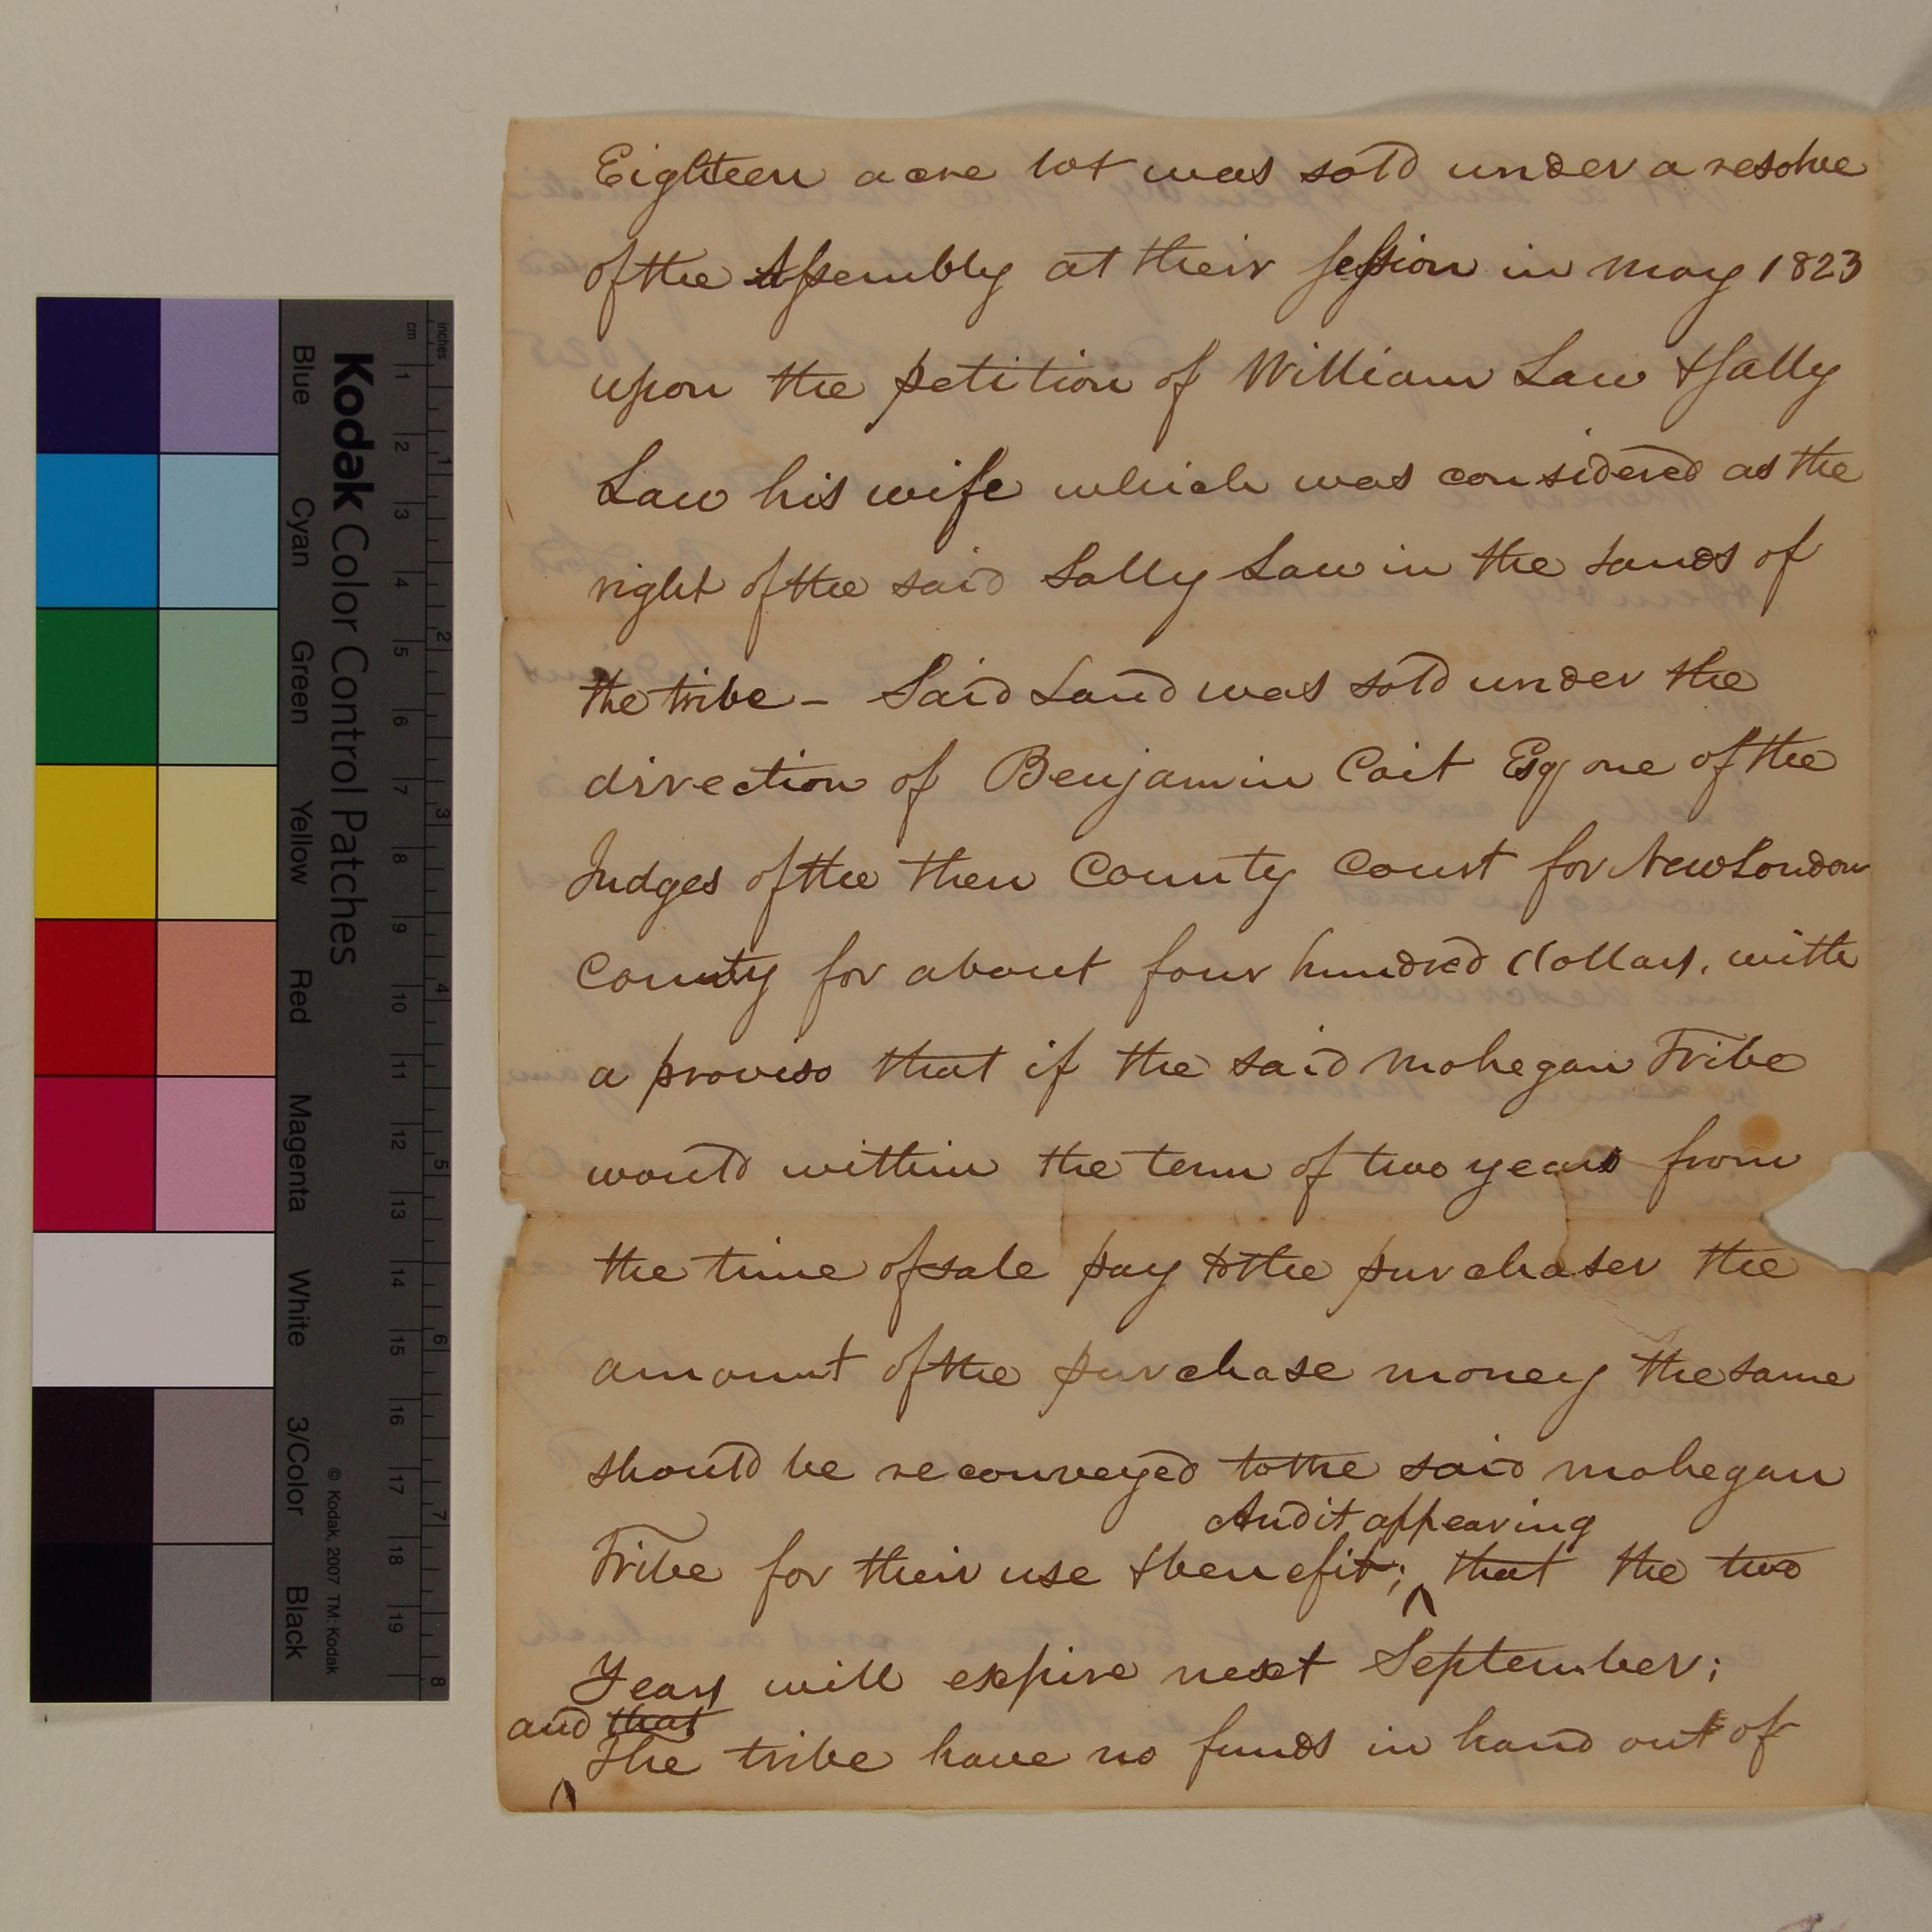 Eighteen acre lot was sold under a resolve
of the Assembly at their session in may 1823
upon the petition of William Law & Sally
Law his wife which was considered as the
right of the said Sally Law in the lands of
the tribe – Said Land was sold under the
direction of Benjamin Coit Esq one of the
Judges of the then County Court for New London
County for about four hundred dollars, with
a proviso that if the said mohegan Tribe
would within the term of two years from
the time of sale pay to the purchaser the
amount of the purchase money the same
should be reconveyed to the said mohegan
And it appearing
Tribe for their use & benefit; ^ that the two
Years will expire next September;
and that
^ The tribe have no funds in hand out of
inches
cm
1 2 3 4 5 6 7 8
1 2 3 4 5 6 7 8 9 10 11 12 13 14 15 16 17 18 19
Kodak Color Control Patches
© Kodak, 2007 TM: Kodak
Blue
Cyan
Green
Yellow
Red
Magenta
White
3/Color
Black